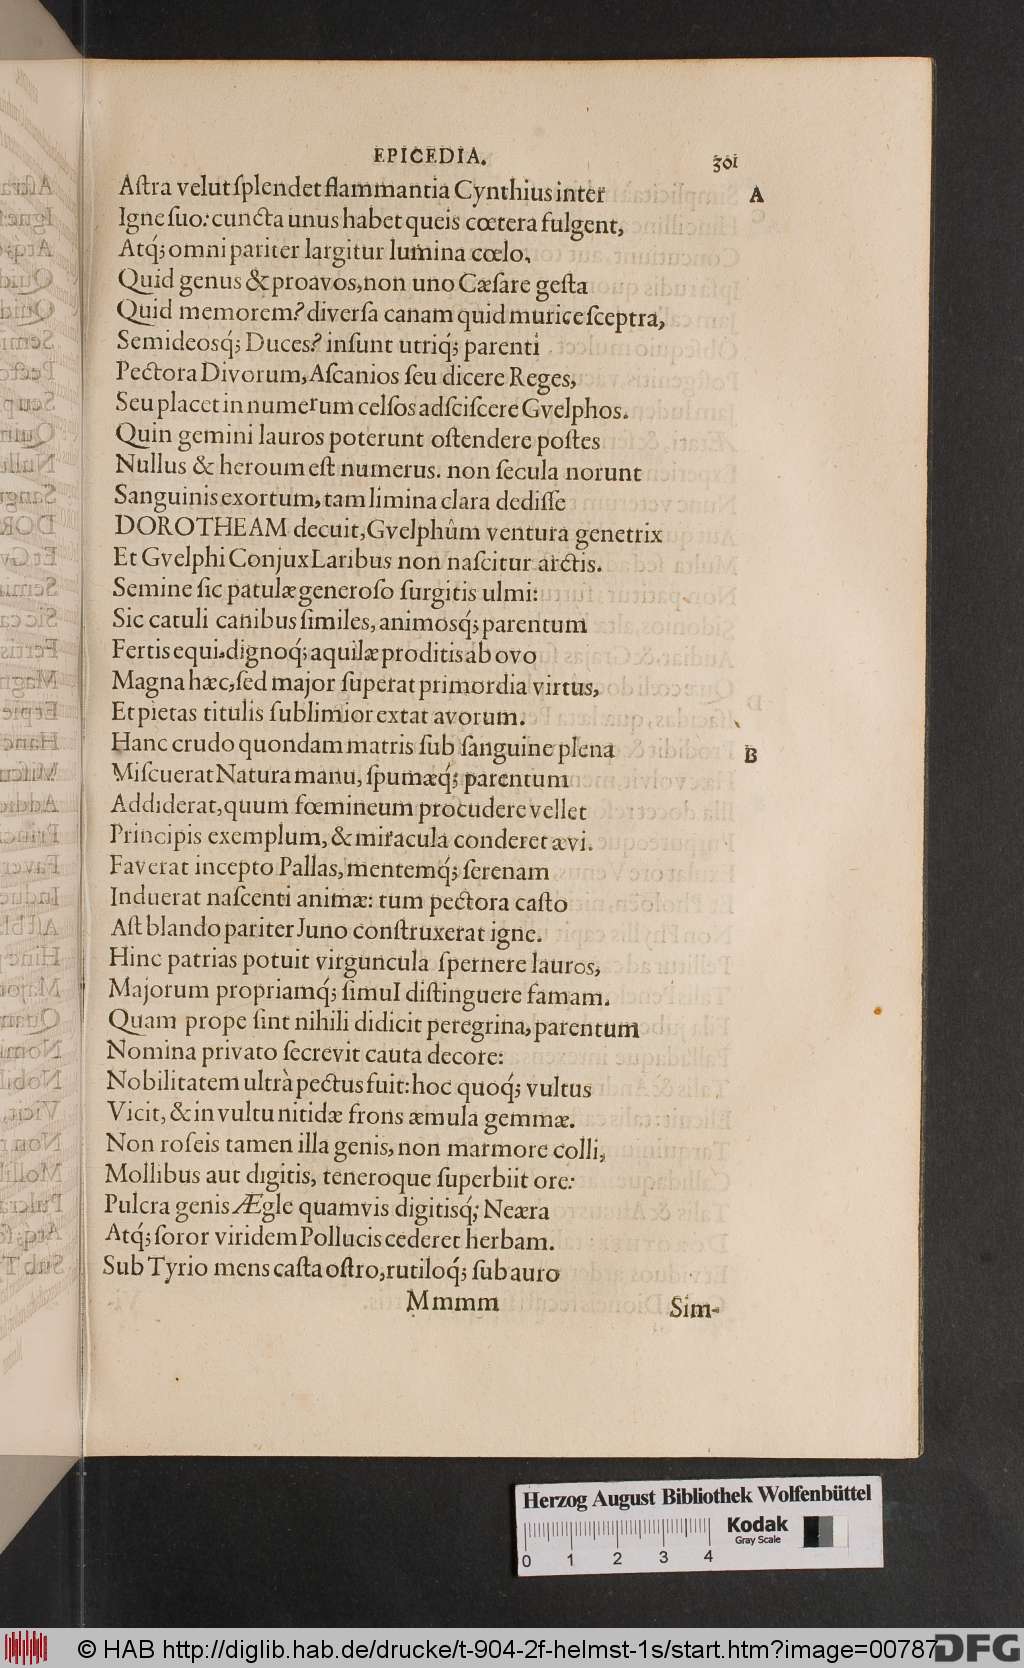 EPICEDIA. 301
Aſtra velut ſplendet flammantia Cynthius inter A
Igne ſuo: cuncta unus habet queis cœtera fulgent,
Atq́; omni pariter largitur lumina cœlo,
Quid genus & proavos, non uno Cæſare geſta
Quid memorem? diverſa canam quid murice ſceptra,
Semideosq́; Duces? inſunt utriq́; parenti
Pectora Divorum, Aſcanios ſeu dicere Reges,
Seu placet in numerum celſos adſciſcere Gvelphos.
Quin gemini lauros poterunt oſtendere poſtes
Nullus & heroum eſt numerus. non ſecula norunt
Sanguinis exortum, tam limina clara dediſſe
DOROTHEAM decuit, Gvelphûm ventura genetrix
Et Gvelphi Conjux Laribus non naſcitur arctis.
Semine ſic patulæ generoſo ſurgitis ulmi:
Sic catuli canibus ſimiles, animosq́; parentum
Fertis equi. dignoq́; aquilæ proditis ab ovo
Magna hæc, ſed major ſuperat primordia virtus,
Et pietas titulis ſublimior extat avorum.
Hanc crudo quondam matris ſub ſanguine plena B
Miſcuerat Natura manu, ſpumæq́; parentum
Addiderat, quum fœmineum procudere vellet
Principis exemplum, & miracula conderet ævi.
Faverat incepto Pallas, mentemq́; ſerenam
Induerat naſcenti animæ: tum pectora caſto
Aſt blando pariter Juno conſtruxerat igne.
Hinc patrias potuit virguncula ſpernere lauros,
Majorum propriamq́; ſimul diſtinguere famam.
Quam prope ſint nihili didicit peregrina, parentum
Nomina privato ſecrevit cauta decore:
Nobilitatem ultrà pectus fuit: hoc quoq́; vultus
Vicit, & in vultu nitidæ frons æmula gemmæ.
Non roſeis tamen illa genis, non marmore colli,
Mollibus aut digitis, teneroque ſuperbiit ore:
Pulcra genis Ægle quamvis digitisq́; Neæra
Atq́; ſoror viridem Pollucis cederet herbam.
Sub Tyrio mens caſta oſtro, rutiloq́; ſub auro
Mmmm Sim-
Herzog August Bibliothek Wolfenbüttel
Kodak
Gray Scale
0 1 2 3 4
© HAB http://diglib.hab.de/drucke/t-904-2f-helmst-1s/start.htm?image=00787
DFG